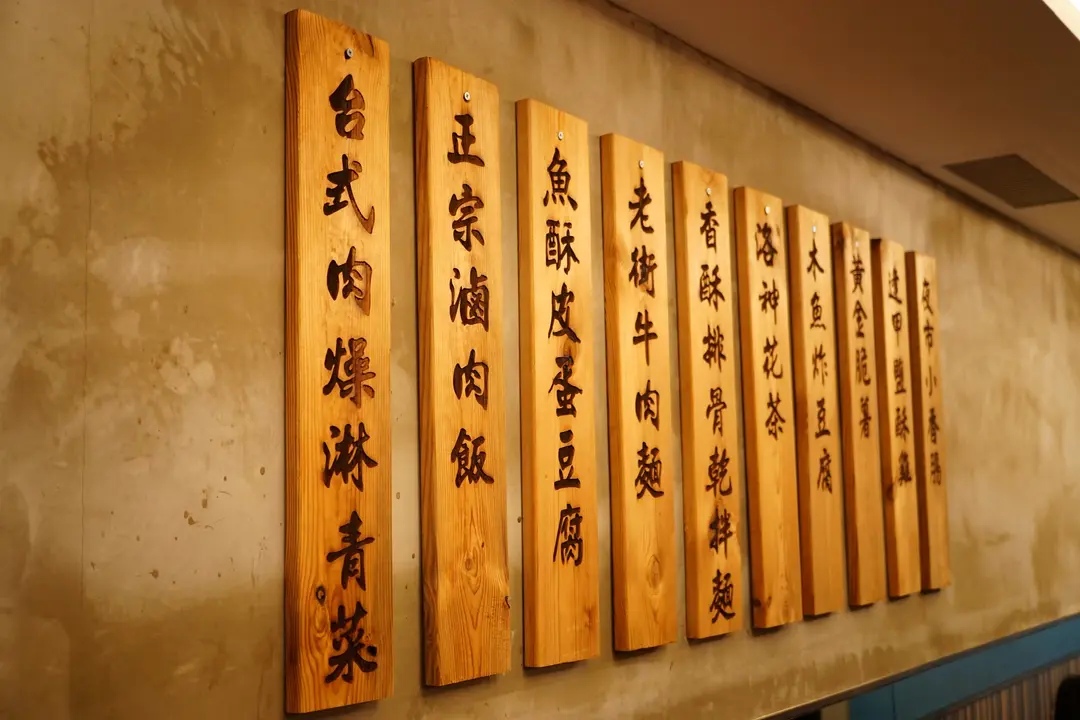 台式肉燥淋青菜
正宗滷肉飯
魚酥皮蛋豆腐
老街牛肉麵
香酥排骨乾拌麵
洛神花茶
木魚炸豆腐
黃金脆薯
達甲鹽酥雞
夜市小香腸